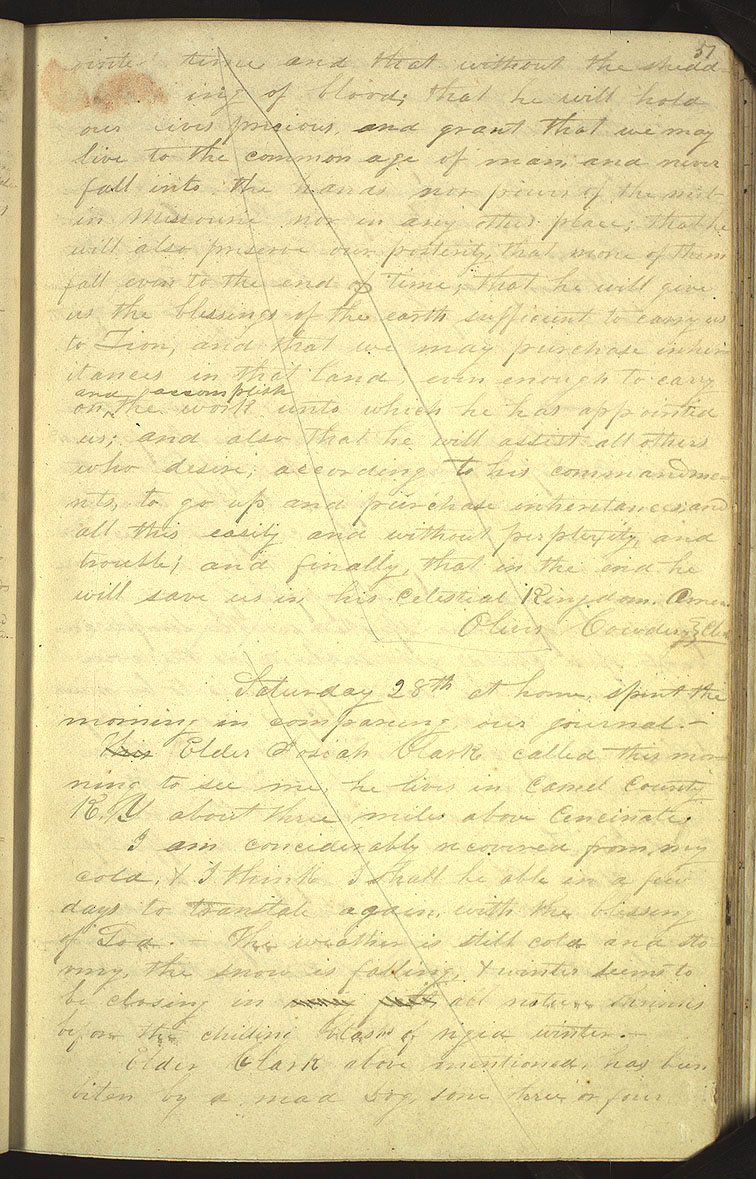 51
time and that without the shedd-
ing of blood; that he will hold
our lives precious, and grant that we may
live to the common age of man, and never
fall into the hands nor power of the mob
in Missourie nor in any other place; that he
will also preserve our posterity, that none of them
fall even to the end of time; that he will give
us the blessings of the earth sufficient to carry us
to Zion, and that we may purchase inher-
itances in that land, even enough to carry
and accomplish
on the work unto which he has appointed
us; and also that he will assist all others
who desire, according to his commandme-
nts, to go up and purchase inheritances, and
all this easily and without perplexity, and
trouble; and finally, that in the end he
will save us in his Celestial Kingdom. Amen.
Oliver Cowdery
Saturday 28th at home, spent the
morning in compareing our journal.—
Elder Josiah Clark called this mor-
ning to see me, he lives in Camel County
K.Y about three miles above Cencinate.
I am conciderably recovered from my
cold, & I think I shall be able in a few
days to translate again, with the blessing
of God.— The weather is still cold and sto-
rmy, the snow is falling, & winter seems to
be closing in all nature shrinks
before the chilling blast of rigid winter.—
Elder Clark above mentioned, has been
biten by a mad dog, some three or four